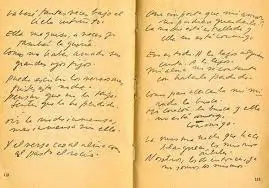 La besé tantas veces bajo el
cielo infinito.
Ella me quiso, a veces yo
también la quería.
Como no haber amado sus
grandes ojos fijos.
Puedo escribir los versos más
tristes esta noche.
Pensar que no la tengo.
Sentir que la he perdido.
Oir la noche inmensa,
mas inmensa sin ella.
Y el verso cae al alma como
al pasto el rocío.
Que importa que mi amor
no pudiera guardarla.
La noche está estrellada y
ella no está conmigo.
Eso es todo. A lo lejos alguien
canta. A lo lejos.
Mi alma no se contenta
con haberla perdido.
Como para acercarla mi mi-
rada la busca.
Mi corazón la busca y ella
no está
conmigo.
La misma noche que hace
blanquear los mismos
árboles.
Nosotros, los de entonces, ya
no somos los mismos.